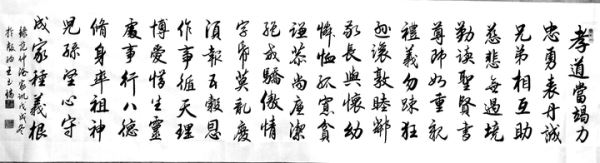 孝道當竭力
忠勇表丹誠
兄弟相互助
慈悲無過境
勤讀聖賢書
尊師如重親
禮義勿疎狂
遜讓敦睦鄰
敬長與懷幼
憐恤孤寡貧
謙恭尚廉潔
絕戒驕傲情
字帋莫亂廢
須報五穀恩
作事循天理
博愛惜生靈
處事行八德
脩身率祖神
兒孫坚心守
成家種義根
錄范仲淹家訓戊戌冬